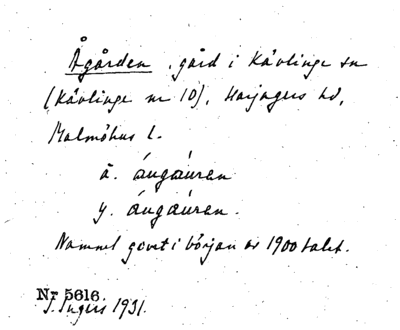 Ågården, gård i Kävlinge sn
(Kävlinge nr 10), Harjagers hd,
Malmöhus l.
ä. áugáuran
y. áugáuran.
Namnet givet i början av 1900 talet.
Nr 5616.
J. Ingers 1931.